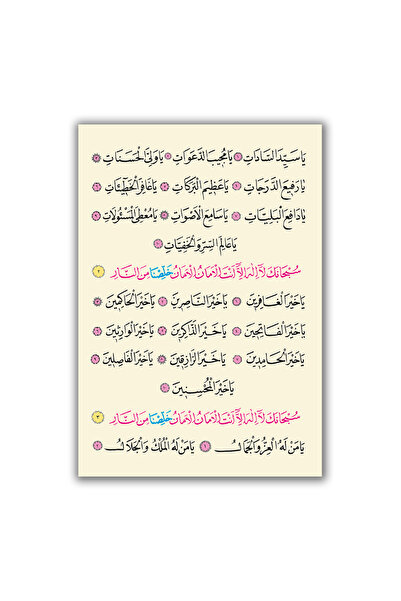 يَا سَيِّدَ السَّادَاتِ يَا مُجِيبَ الدَّعَوَاتِ يَا وَلِيَّ الْحَسَنَاتِ
يَا رَفِيعَ الدَّرَجَاتِ يَا عَظِيمَ الْبَرَكَاتِ يَا غَافِرَ الْخَطِيئَاتِ
يَا دَافِعَ الْبَلِيَّاتِ يَا سَامِعَ الْأَصْوَاتِ يَا مُعْطِيَ الْمَسْئُولَاتِ
يَا عَالِمَ السِّرِّ وَالْخَفِيَّاتِ
سُبْحَانَكَ لَا إِلٰهَ إِلَّا أَنْتَ الْأَمَانُ الْأَمَانُ خَلِّصْنَا مِنَ النَّارِ ٢
يَا خَيْرَ الْغَافِرِينَ يَا خَيْرَ النَّاصِرِينَ يَا خَيْرَ الْحَاكِمِينَ
يَا خَيْرَ الْفَاتِحِينَ يَا خَيْرَ الذَّاكِرِينَ يَا خَيْرَ الْوَارِثِينَ
يَا خَيْرَ الْحَامِدِينَ يَا خَيْرَ الرَّازِقِينَ يَا خَيْرَ الْفَاصِلِينَ
يَا خَيْرَ الْمُحْسِنِينَ
سُبْحَانَكَ لَا إِلٰهَ إِلَّا أَنْتَ الْأَمَانُ الْأَمَانُ خَلِّصْنَا مِنَ النَّارِ ٣
يَا مَنْ لَهُ الْعِزُّ وَالْجَمَالُ يَا مَنْ لَهُ الْمُلْكُ وَالْجَلَالُ